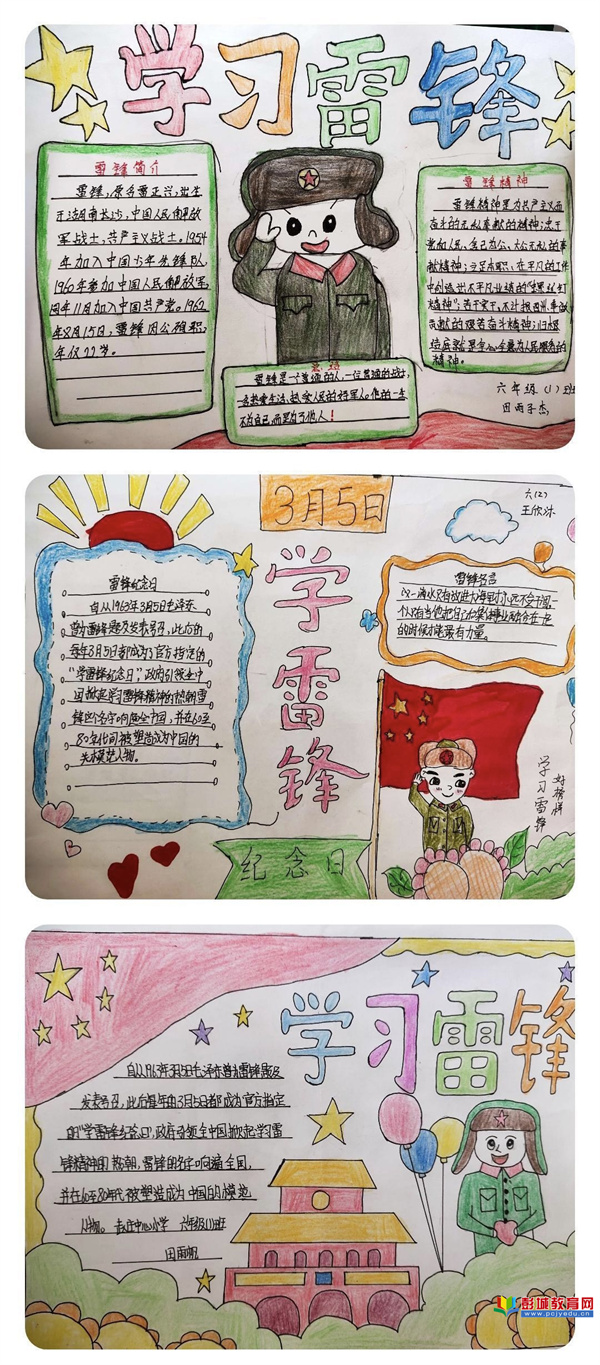 学习雷锋
雷锋简介
雷锋,原名雷正兴,出生
于湖南长沙,中国人民解放
军战士,共产主义战士。1954
年加入中国少年先锋队,
1960年参加中国人民解放军,
同年11月加入中国共产党。1962
年8月15日,雷锋因公殉职,
年仅22岁。
雷锋精神
雷锋精神是为共产主义而
奋斗的无私奉献的精神;忠于
党和人民、舍己为公、大公无私的奉
献精神;立足本职、在平凡的工作
中创造出不平凡业绩的"螺丝钉
精神";苦干实干、不计报酬、争做
贡献的艰苦奋斗精神;归根
结底就是全心全意为人民服务的
精神。
雷锋是一个普通的人,一位普通的战士
一名热爱生活、热爱人民的好军人。他的一生
不为自己,而是为了他人!
六年级(1)班
田雨子杰
3月5日
六(2)
王欣冰
学雷锋
纪念日
雷锋纪念日
自从1963年3月5日毛泽东
曾为雷锋题及发表号召,此后的
每年3月5日都成为官方指定的
"学雷锋纪念日",政府引领全中
国掀起学习雷锋精神的热潮,雷
锋这个名字响遍全中国,并在60至
80年代间被塑造成为中国的
头模范人物。
雷锋名言
一滴水只有放进大海里才永远不会干涸,一
个人只有当他把自己和集体事业融合在一起
的时候才能最有力量。
学习雷锋
好榜样
学习雷锋
自从1963年3月5日毛泽东曾为雷锋题及
发表号召,此后每年由3月5日都成为官方指定
的"学雷锋纪念日",政府引领全中国掀起学习雷
锋精神的热潮,雷锋的名字响遍全国,
并在60至80年代被塑造成为中国的头模范
人物。
中心小学 六年级(1)班
田雨帆
彭城教育网
www.pcjyedu.cn